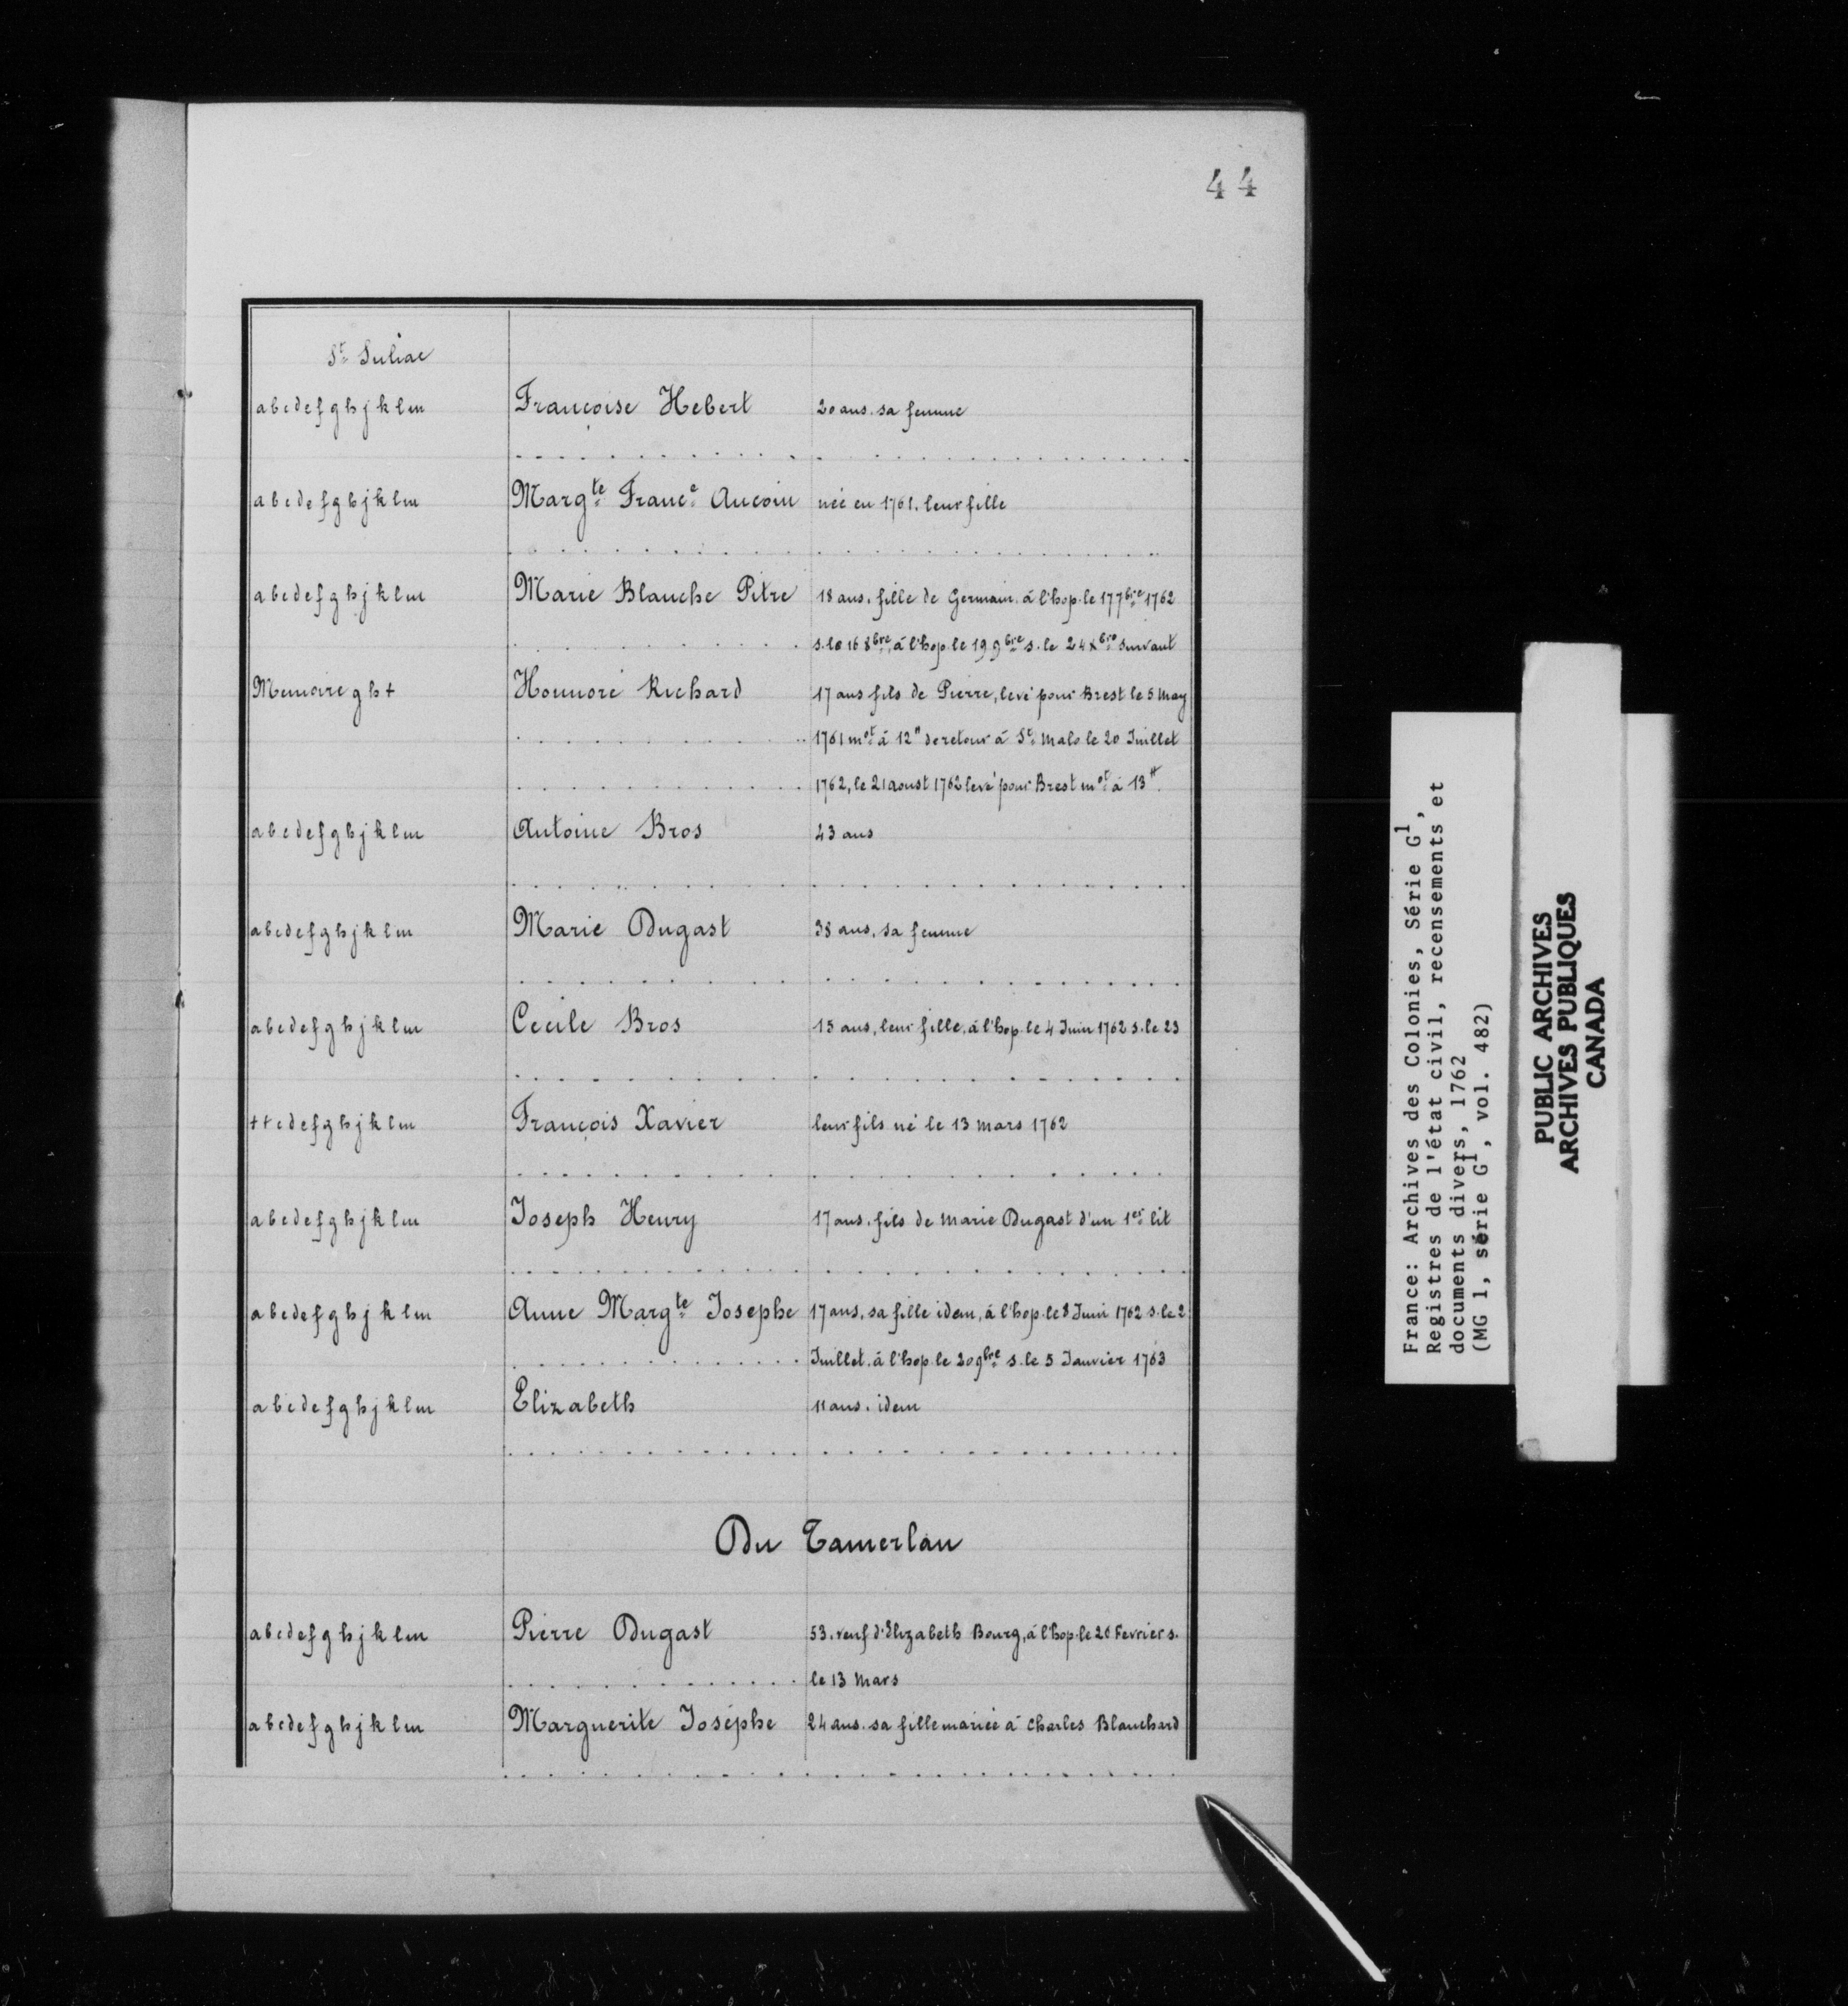 44
St Suliac
abcdefghjklm Françoise Hebert 20 ans. sa femme
abcdefghjklm Margte France Aucoin née en 1761. leur fille
abcdefghjklm Marie Blanche Pitre 18 ans. fille de Germain. à l'hop. le 17 7bre 1762
s. le 16 8bre, à l'hop. le 19 9bre s. le 24 Xbre suivant
Memoire g h + Honnoré Richard 17 ans fils de Pierre, levé pour Brest le 5 May
1761 mot à 12# de retour à St Malo le 20 Juillet
1762, le 21 aoust 1762 levé pour Brest mot à 13#.
abcdefghjklm Antoine Bros 43 ans
abcdefghjklm Marie Dugast 38 ans. sa femme
abcdefghjklm Cecile Bros 15 ans, leur fille, à l'hop. le 4 Juin 1762 s. le 23
++cdefghjklm François Xavier leur fils né le 13 mars 1762
abcdefghjklm Joseph Henry 17 ans. fils de Marie Dugast d'un 1er lit
abcdefghjklm Anne Margte Josephe 17 ans. sa fille idem, à l'hop. le 8 Juin 1762 s. le 2
Juillet. à l'hop. le 20 9bre s. le 5 Janvier 1763
abcdefghjklm Elizabeth 11 ans. idem
Du Tamerlan
abcdefghjklm Pierre Dugast 53. veuf d'Elizabeth Bourg, à l'hop. le 20 Fevrier s.
le 13 Mars
abcdefghjklm Marguerite Joséphe 24 ans. sa fille mariée à Charles Blanchard
France: Archives des Colonies, Série G1,
Registres de l'état civil, recensements et
documents divers, 1762
(MG 1, série G1, vol. 482)
PUBLIC ARCHIVES
ARCHIVES PUBLIQUES
CANADA